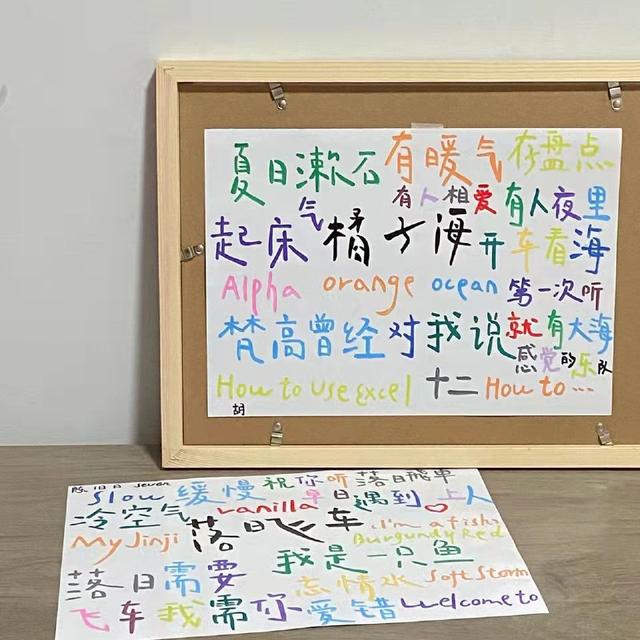 夏日漱石 有暖气 存盘点
有人相爱 有人夜里
起床气 橘子海 开车看海
Alpha orange ocean 第一次听
梵高曾经对我说 就有大海
感觉的乐队
How to use Excel 十二 How to ...
胡
陈 旧日 seven
slow 缓慢 祝你听落日飛車
冷空气 vanilla 早日遇到上人
My Jinji 落日飞车 I'm a fish
Burgundy Red
我是一只鱼
落日需要 忘情水 Soft Storm
飞车 我需你 爱错 welcome to